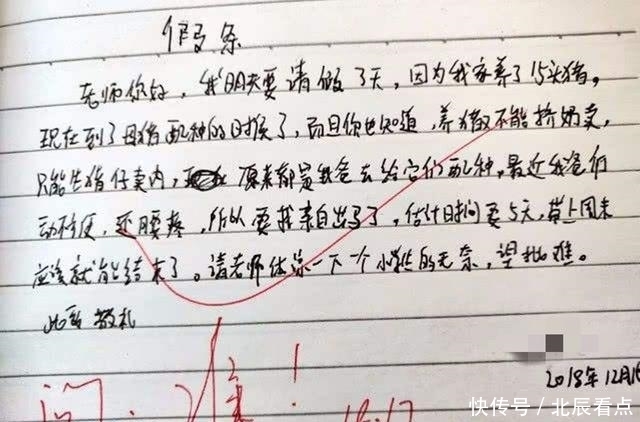 假条
老师你好，我明天要请假3天，因为我家养了15头猪。
现在到了母猪配种的时候了，而且你也知道，养猪又不能挤奶卖，
只能生猪仔卖肉，原来都是我爸去给它们配种，最近我爸行
动不便，还腰疼，所以要我亲自出马了，估计时间要5天，带上周末
应该就能结束了。请老师体谅一下一个小孩的无奈，望批准。
此致敬礼
2018年12月16
准！
12.17
快传号/北辰看点